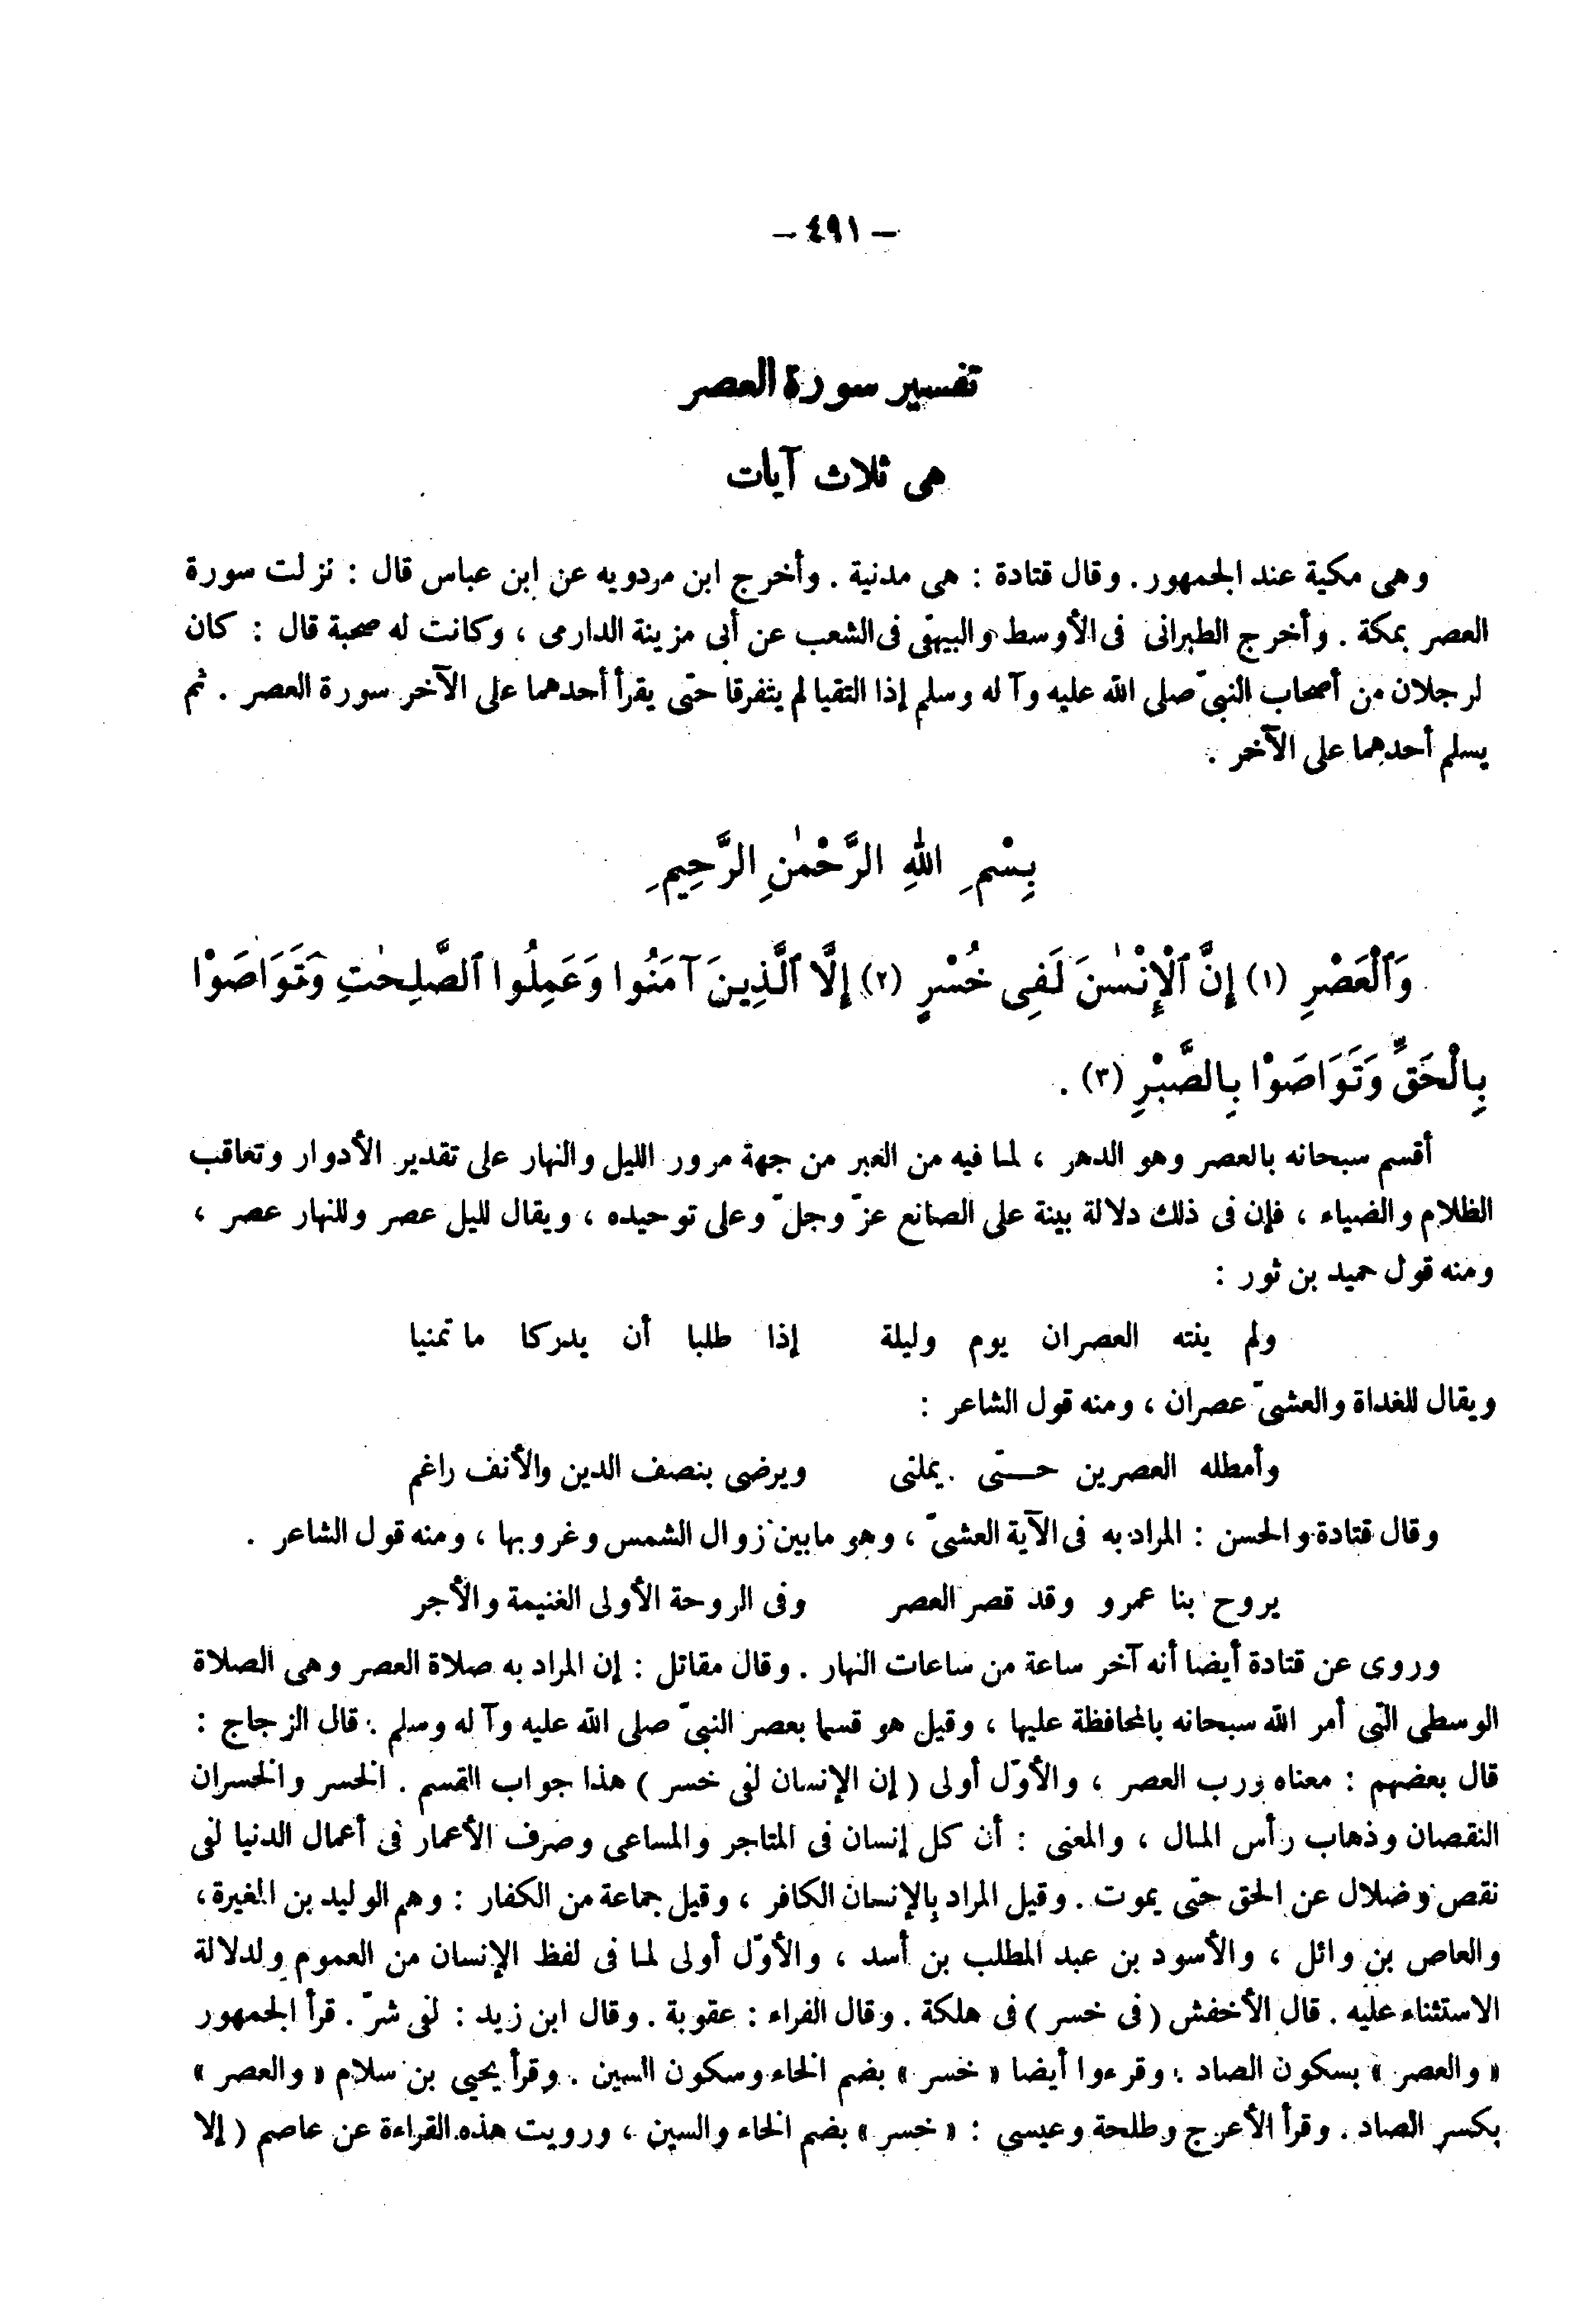 — ٤٩١ —
تفسير سورة العصر
هى ثلاث آيات
وهى مكية عند الجمهور . وقال قتادة : هى مدنية . وأخرج ابن مردويه عن ابن عباس قال : نزلت سورة
العصر بمكة . وأخرج الطبرانى فى الأوسط والبيهقى فى الشعب عن أبى مزينة الدارمى ، وكانت له صحبة قال : كان
لرجلان من أصحاب النبىّ صلى الله عليه وآله وسلم إذا التقيا لم يتفرقا حتى يقرأ أحدهما على الآخر سورة العصر . ثم
يسلم أحدهما على الآخر .
بِسْمِ اللهِ الرَّحْمٰنِ الرَّحِيمِ
وَٱلْعَصْرِ (١) إِنَّ ٱلْإِنْسٰنَ لَفِى خُسْرٍ (٢) إِلَّا ٱلَّذِينَ آمَنُوا وَعَمِلُوا ٱلصَّلِحٰتِ وَتَوَاصَوْا
بِالْحَقِّ وَتَوَاصَوْا بِالصَّبْرِ (٣) .
أقسم سبحانه بالعصر وهو الدهر ، لما فيه من العبر من جهة مرور الليل والنهار على تقدير الأدوار وتعاقب
الظلام والضياء ، فإن فى ذلك دلالة بينة على الصانع عزّ وجلّ وعلى توحيده ، ويقال لليل عصر وللنهار عصر ،
ومنه قول حميد بن ثور :
ولم ينته العصران يوم وليلة إذا طلبا أن يدركا ما تمنيا
ويقال للغداة والعشىّ عصران ، ومنه قول الشاعر :
وأمطله العصرين حتى يملنى ويرضى بنصف الدين والأنف راغم
وقال قتادة والحسن : المراد به فى الآية العشىّ ، وهو مابين زوال الشمس وغروبها ، ومنه قول الشاعر .
يروح بنا عمرو وقد قصر العصر وفى الروحة الأولى الغنيمة والأجر
وروى عن قتادة أيضا أنه آخر ساعة من ساعات النهار . وقال مقاتل : إن المراد به صلاة العصر وهى الصلاة
الوسطى التى أمر الله سبحانه بالمحافظة عليها ، وقيل هو قسم بعصر النبىّ صلى الله عليه وآله وسلم . قال الزجاج :
قال بعضهم : معناه ورب العصر ، والأوّل أولى ( إن الإنسان لفى خسر ) هذا جواب القسم . الخسر والخسران
النقصان وذهاب رأس المال ، والمعنى : أن كل إنسان فى المتاجر والمساعى وصرف الأعمار فى أعمال الدنيا لفى
نقص وضلال عن الحق حتى يموت . وقيل المراد بالإنسان الكافر ، وقيل جماعة من الكفار : وهم الوليد بن المغيرة ،
والعاص بن وائل ، والأسود بن عبد المطلب بن أسد ، والأوّل أولى لما فى لفظ الإنسان من العموم ولدلالة
الاستثناء عليه . قال الأخفش ( فى خسر ) فى هلكة . وقال الفراء : عقوبة . وقال ابن زيد : لفى شرّ . قرأ الجمهور
« والعصر » بسكون الصاد . وقرءوا أيضا « خسر » بضم الخاء وسكون السين . وقرأ يحيى بن سلام « والعصر »
بكسر الصاد . وقرأ الأعرج وطلحة وعيسى : « خسر » بضم الخاء والسين ، ورويت هذه القراءة عن عاصم ( إلا